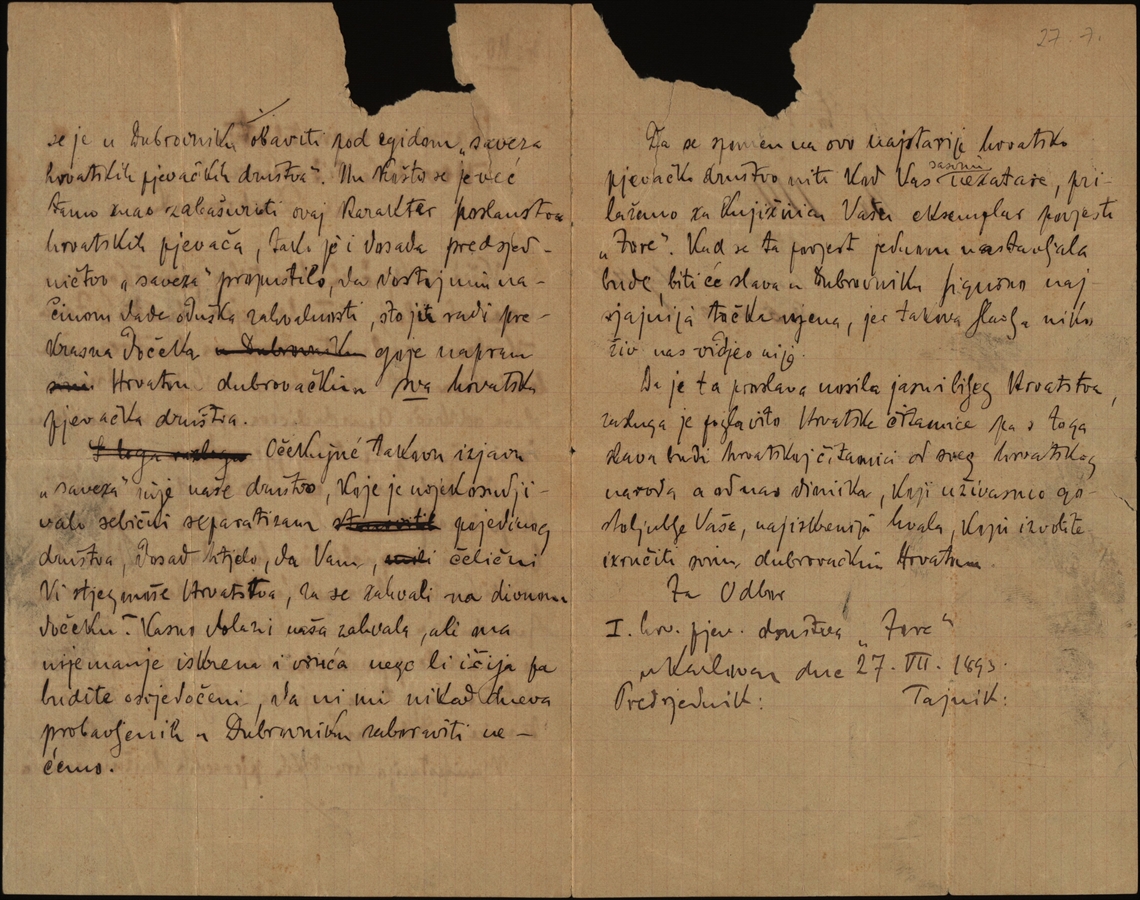 se je u Dubrovniku obaviti pod egidom „saveza
hrvatskih pjevačkih društva“. Nu kašto se je već
tamo znao zabašuriti ovaj karakter poslanstva
hrvatskih pjevača, tako je i dosada predsjed-
ničtvo „saveza“ propustilo, da dostojnim na-
činom dade oduška zahvalnosti, što ju radi pre-
krasna dočeka u Dubrovniku goje napram
svim Hrvatom dubrovačkim sva hrvatska
pjevačka društva.
S toga razloga Očekujuć takovu izjavu
„saveza“ nije naše društvo, koje je uvjek osudji-
valo sebični separatizam pojedinog
društva, dosad htjelo, da Vam, čelični
Vi stjegonoše Hrvatstva, za se zahvali na divnom
dočeku. Kasno dolazi naša zahvala, ali ma
nijemanje iskrena i vruća nego li ičija pa
budite osvjedočeni, da ni mi nikad dneva
probavljenih u Dubrovniku zaboraviti ne-
ćemo.
27. 7.
Da se spomen na ovo najstarije hrvatsko
pjevačko društvo niti kod Vas sasvim nezatare, pri-
lažemo za knjižnicu Vašu eksemplar povjesti
„Zore“. Kad se ta povjest jednom nastavljala
bude, biti će slava u Dubrovniku sigurno naj-
sjajnija točka njena, jer takova slavlja niko
živ nas vidjeo nije.
Da je ta proslava nosila jasni biljeg Hrvatstva,
zasluga je poglavito Hrvatske čitaonice pa s toga
slava budi hrvatskoj čitaonici od sveg hrvatskog
naroda a od nas dionika, koji uživasmo go-
stoljublje Vaše, najiskrenija hvala, koju izvolite
izručiti svim dubrovačkim Hrvatom.
Za Odbor
I. hrv. pjev. društva „Zore“
u Karlovcu dne 27. VII. 1893.
Predsjednik: Tajnik: